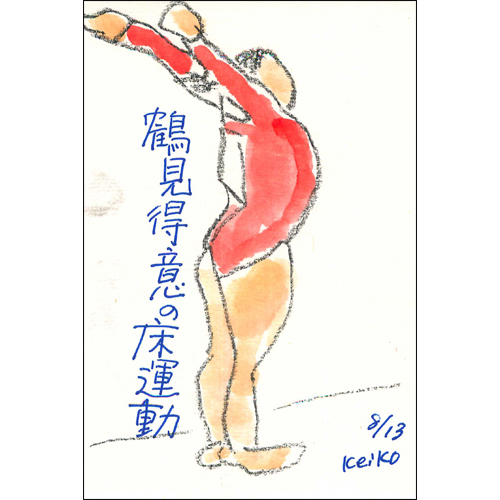 鶴見得意の床運動
8/13
Keiko